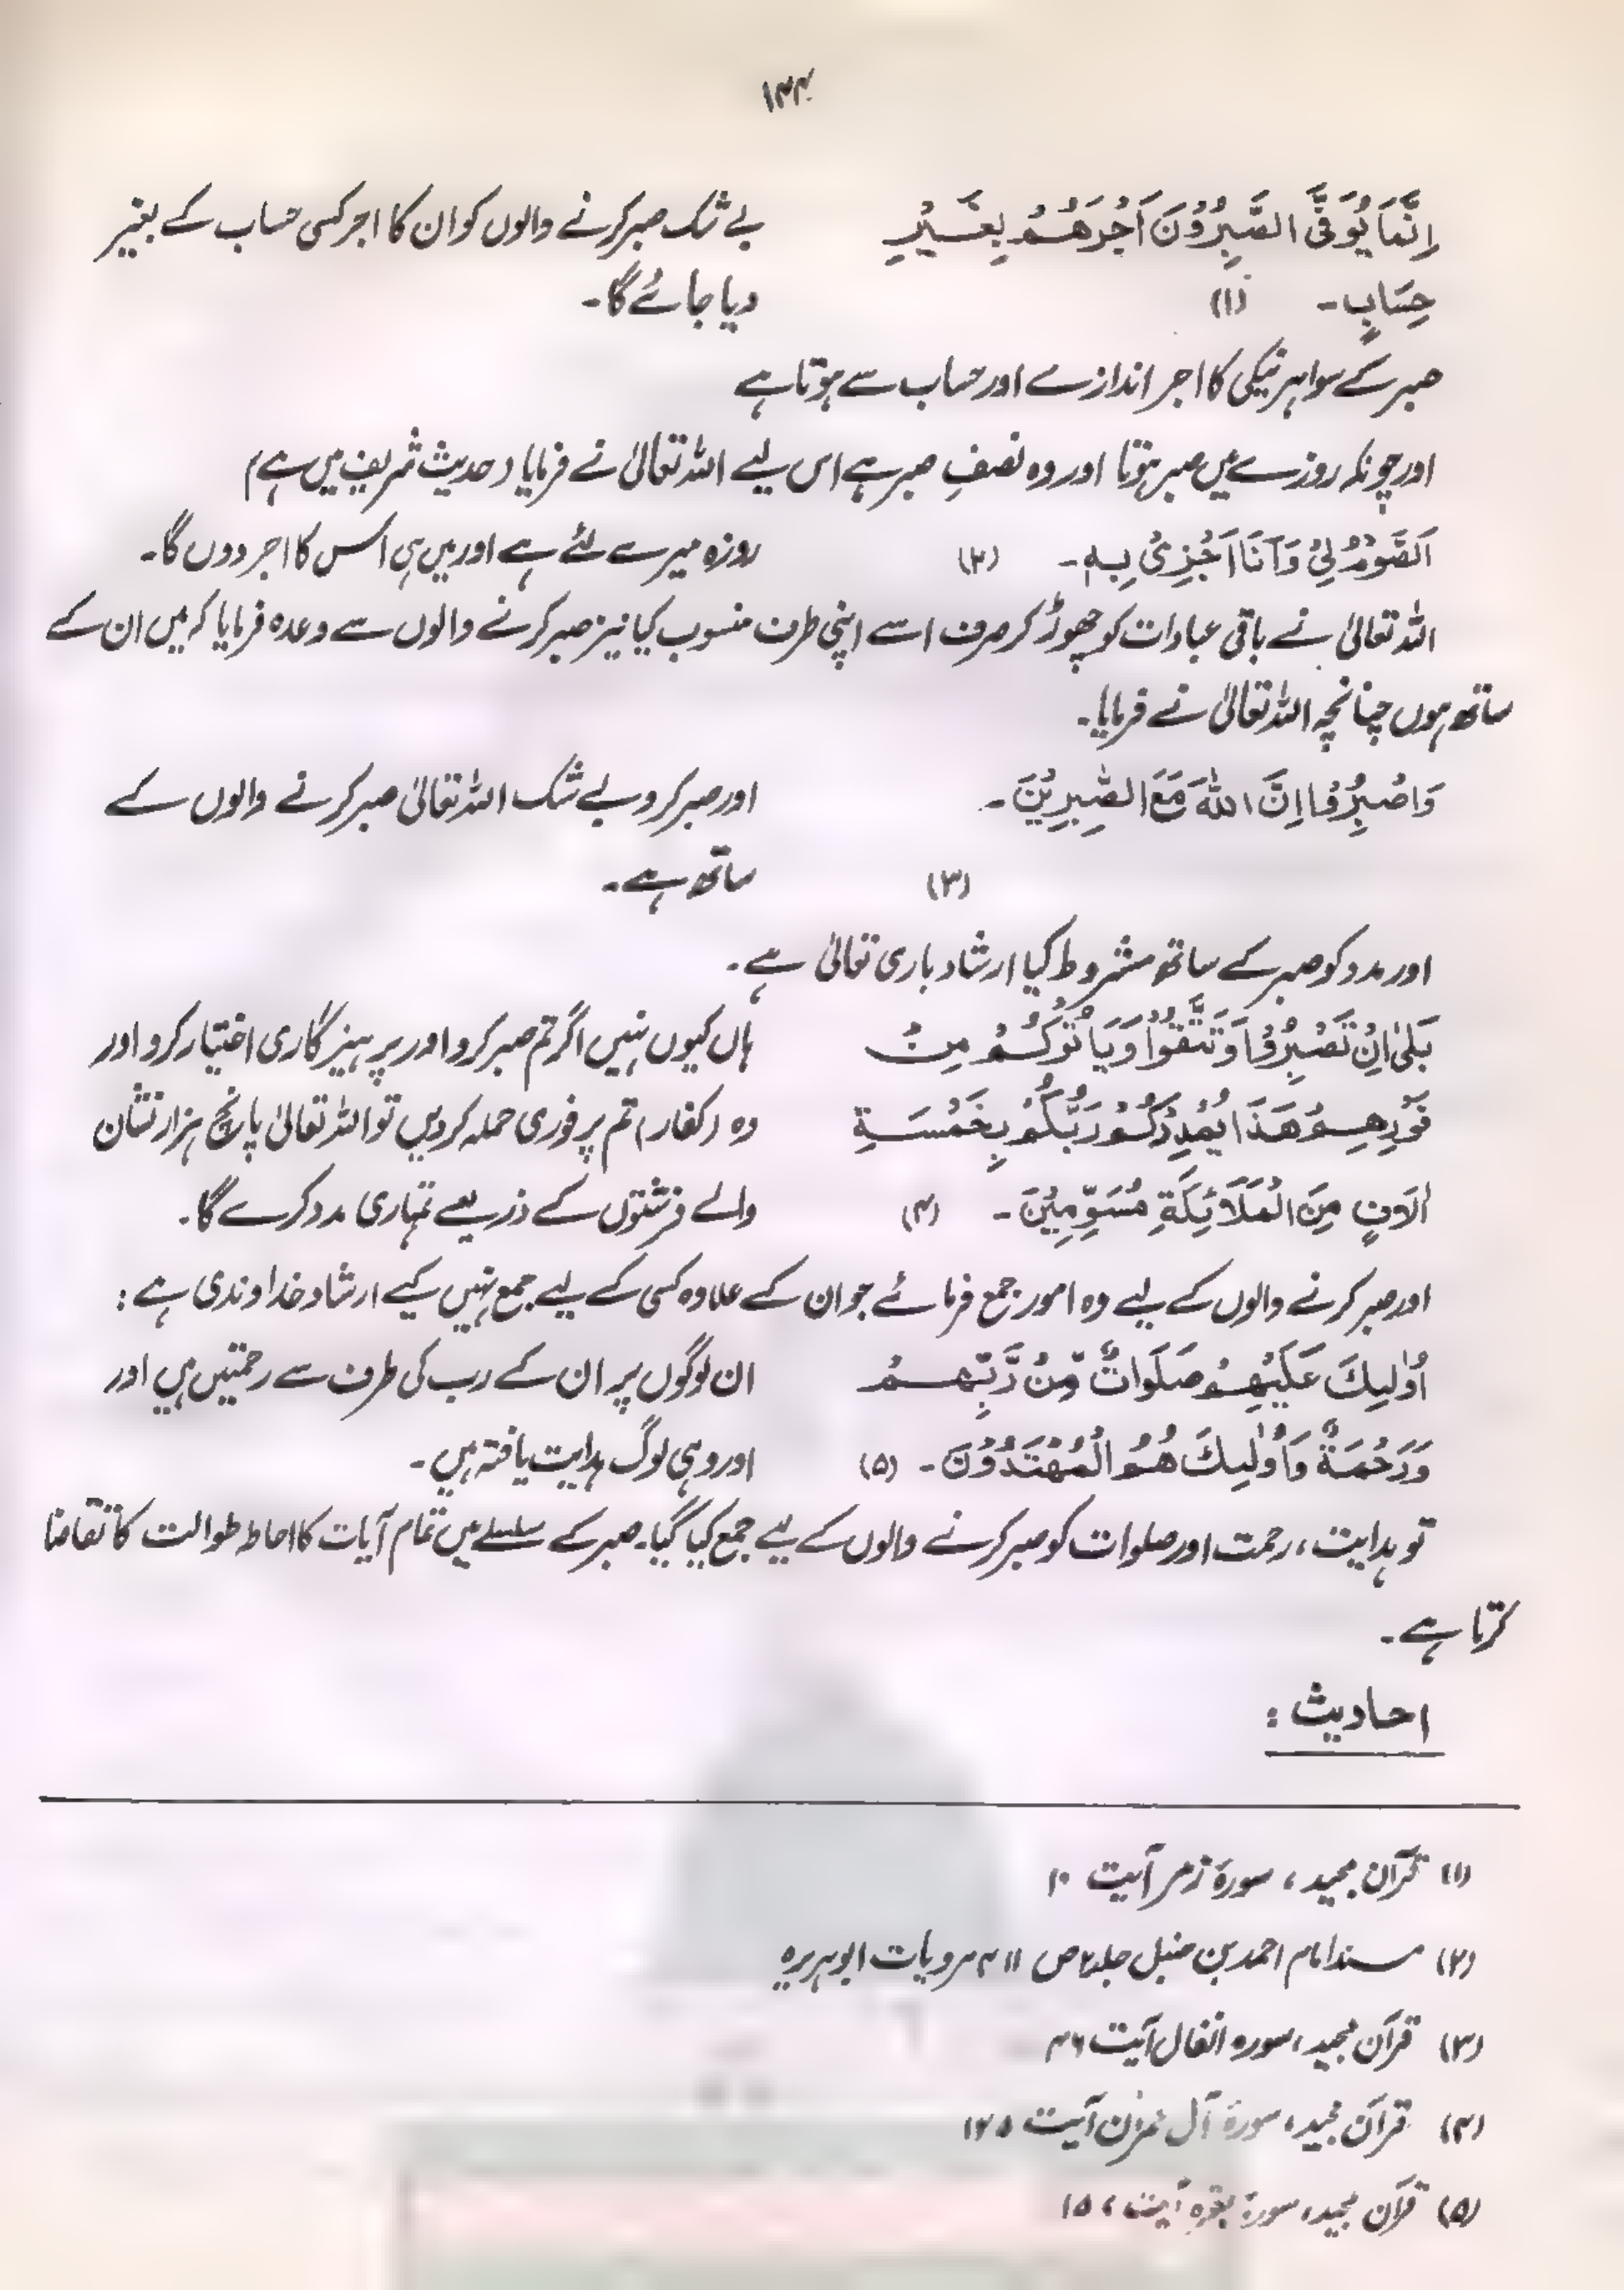 ۱۳۴
اِنَّمَا يُوَفَّى الصّٰبِرُوْنَ اَجْرَهُمْ بِغَيْرِ بے شک صبر کرنے والوں کو ان کا اجر کسی حساب کے بغیر
حِسَابٍ۔ (۱) دیا جائے گا۔
صبر کے سوا ہر نیکی کا اجر اندازے اور حساب سے ہوتا ہے
اور چونکہ روزے میں صبر ہوتا اور وہ نصفِ صبر ہے اس لیے اللہ تعالیٰ نے فرمایا (حدیث شریف میں ہے)
اَلصَّوْمُ لِيْ وَاَنَا اَجْزِيْ بِهٖ۔ (۲) روزہ میرے لئے ہے اور میں ہی اس کا اجر دوں گا۔
اللہ تعالیٰ نے باقی عبادات کو چھوڑ کر صرف اسے اپنی طرف منسوب کیا نیز صبر کرنے والوں سے وعدہ فرمایا کہ میں ان کے
ساتھ ہوں چنانچہ اللہ تعالیٰ نے فرمایا۔
وَاصْبِرُوْا اِنَّ اللّٰهَ مَعَ الصّٰبِرِيْنَ۔ اور صبر کرو بے شک اللہ تعالیٰ صبر کرنے والوں کے
(۳) ساتھ ہے۔
اور مدد کو صبر کے ساتھ مشروط کیا ارشاد باری تعالیٰ ہے۔
بَلٰى اِنْ تَصْبِرُوْا وَتَتَّقُوْا وَيَاْتُوْكُمْ مِنْ ہاں کیوں نہیں اگر تم صبر کرو اور پرہیزگاری اختیار کرو اور
فَوْرِهِمْ هَذَا يُمْدِدْكُمْ رَبُّكُمْ بِخَمْسَةِ وہ (کفار) تم پر فوری حملہ کر دیں تو اللہ تعالیٰ پانچ ہزار نشان
اٰلَافٍ مِنَ الْمَلَائِكَةِ مُسَوِّمِيْنَ۔ (۴) والے فرشتوں کے ذریعے تمہاری مدد کرے گا۔
اور صبر کرنے والوں کے لیے وہ امور جمع فرمائے جو ان کے علاوہ کسی کے لیے جمع نہیں کیے ارشاد خداوندی ہے :
اُوْلٰئِكَ عَلَيْهِمْ صَلَوَاتٌ مِّنْ رَّبِّهِمْ ان لوگوں پر ان کے رب کی طرف سے رحمتیں ہیں اور
وَرَحْمَةٌ وَاُوْلٰئِكَ هُمُ الْمُهْتَدُوْنَ۔ (۵) اور وہی لوگ ہدایت یافتہ ہیں۔
تو ہدایت ، رحمت اور صلوات کو صبر کرنے والوں کے لیے جمع کیا گیا۔ صبر کے سلسلے میں تمام آیات کا احاطہ طوالت کا تقاضا
کرتا ہے۔
احادیث :
(۱) قرآن مجید ، سورۃ زمر آیت ۱۰
(۲) مسند امام احمد بن حنبل جلد ۲ ص ۴۱۱ مرویات ابوہریرہ
(۳) قرآن مجید ، سورہ انفال آیت ۴۶
(۴) قرآن مجید ، سورۃ آل عمران آیت ۱۲۵
(۵) قرآن مجید ، سورۃ بقرہ آیت ۱۵۷